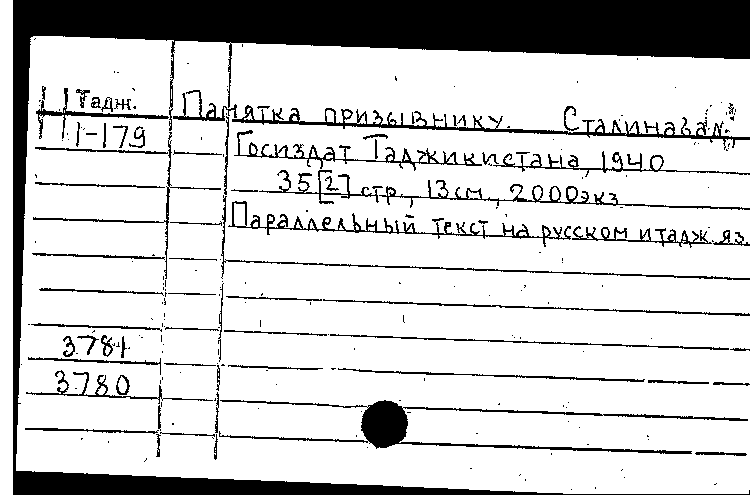 Тадж.
Памятка призывнику. Сталинабад,
1-179
Госиздат Таджикистана, 1940
35[2] стр., 13см., 2000экз
Параллельный текст на русском и тадж. яз.
3781
3780